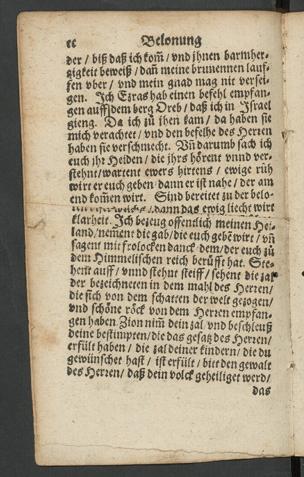 Belonung
der / biß daß ich kom̃ / vnd jhnen barmher-
tzigkeit beweiß / dañ meine brunnennen lauf-
fen vber / vnd mein gnad mag nit versei-
gen. Ich Ezras hab einen befehl empfan-
gen auff dem berg Oreb / daß ich in Israel
gieng. Da ich zů jhen kam / da haben sie
mich verachtet / vnd den befelhe des Herren
haben sie verschmecht. Vñ darumb sach ich
euch jhr Heiden / die jhrs hörent vnnd ver-
stehnt / wartent ewers hirtens / ewige růh
wirt er euch geben / dann er ist nahe / der am
end kom̃en wirt. Sind bereitet zů der belo-
/ dann das ewig liecht wirt
klarheit. Ich bezeug offentlich meinen Hei-
land / nement die gab / die euch gebē wirt / vñ
sagent mit frolocken danck dem / der euch zů
dem Himmelischen reich berůfft hat. Ste-
hent auff / vnnd stehnt steiff / sehent die zal
der bezeichneten in dem mahl des Herren /
die sich von dem schatten der welt gezogen /
vnd schöne röck von dem Herren empfan-
gen haben Zion nim̃ dein zal vnd beschleuß
deine bestimpten / die das gesatz des Herren /
erfült haben / die zal deiner kindern / die du
gewünschet hast / ist erfült / bitt den gewalt
des Herren / daß dein volck geheiliget werd /
das